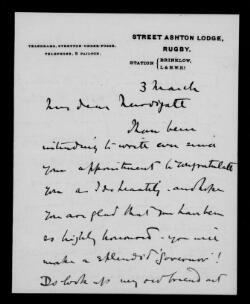 STREET ASHTON LODGE,
RUGBY.
TELEGRAMS, STRETTON UNDER-FOSSE.
TELEPHONE, 2 PAILTON.
STATION { BRINKLOW,
L & N.W.RY
3 March
My dear Newdigate
I have been
intending to write ever since
your appointment to congratulate
you as I do heartily. and hope
you are glad that you have been
so highly honoured. you will
make a splendid Governor!
Do look up my old friend at